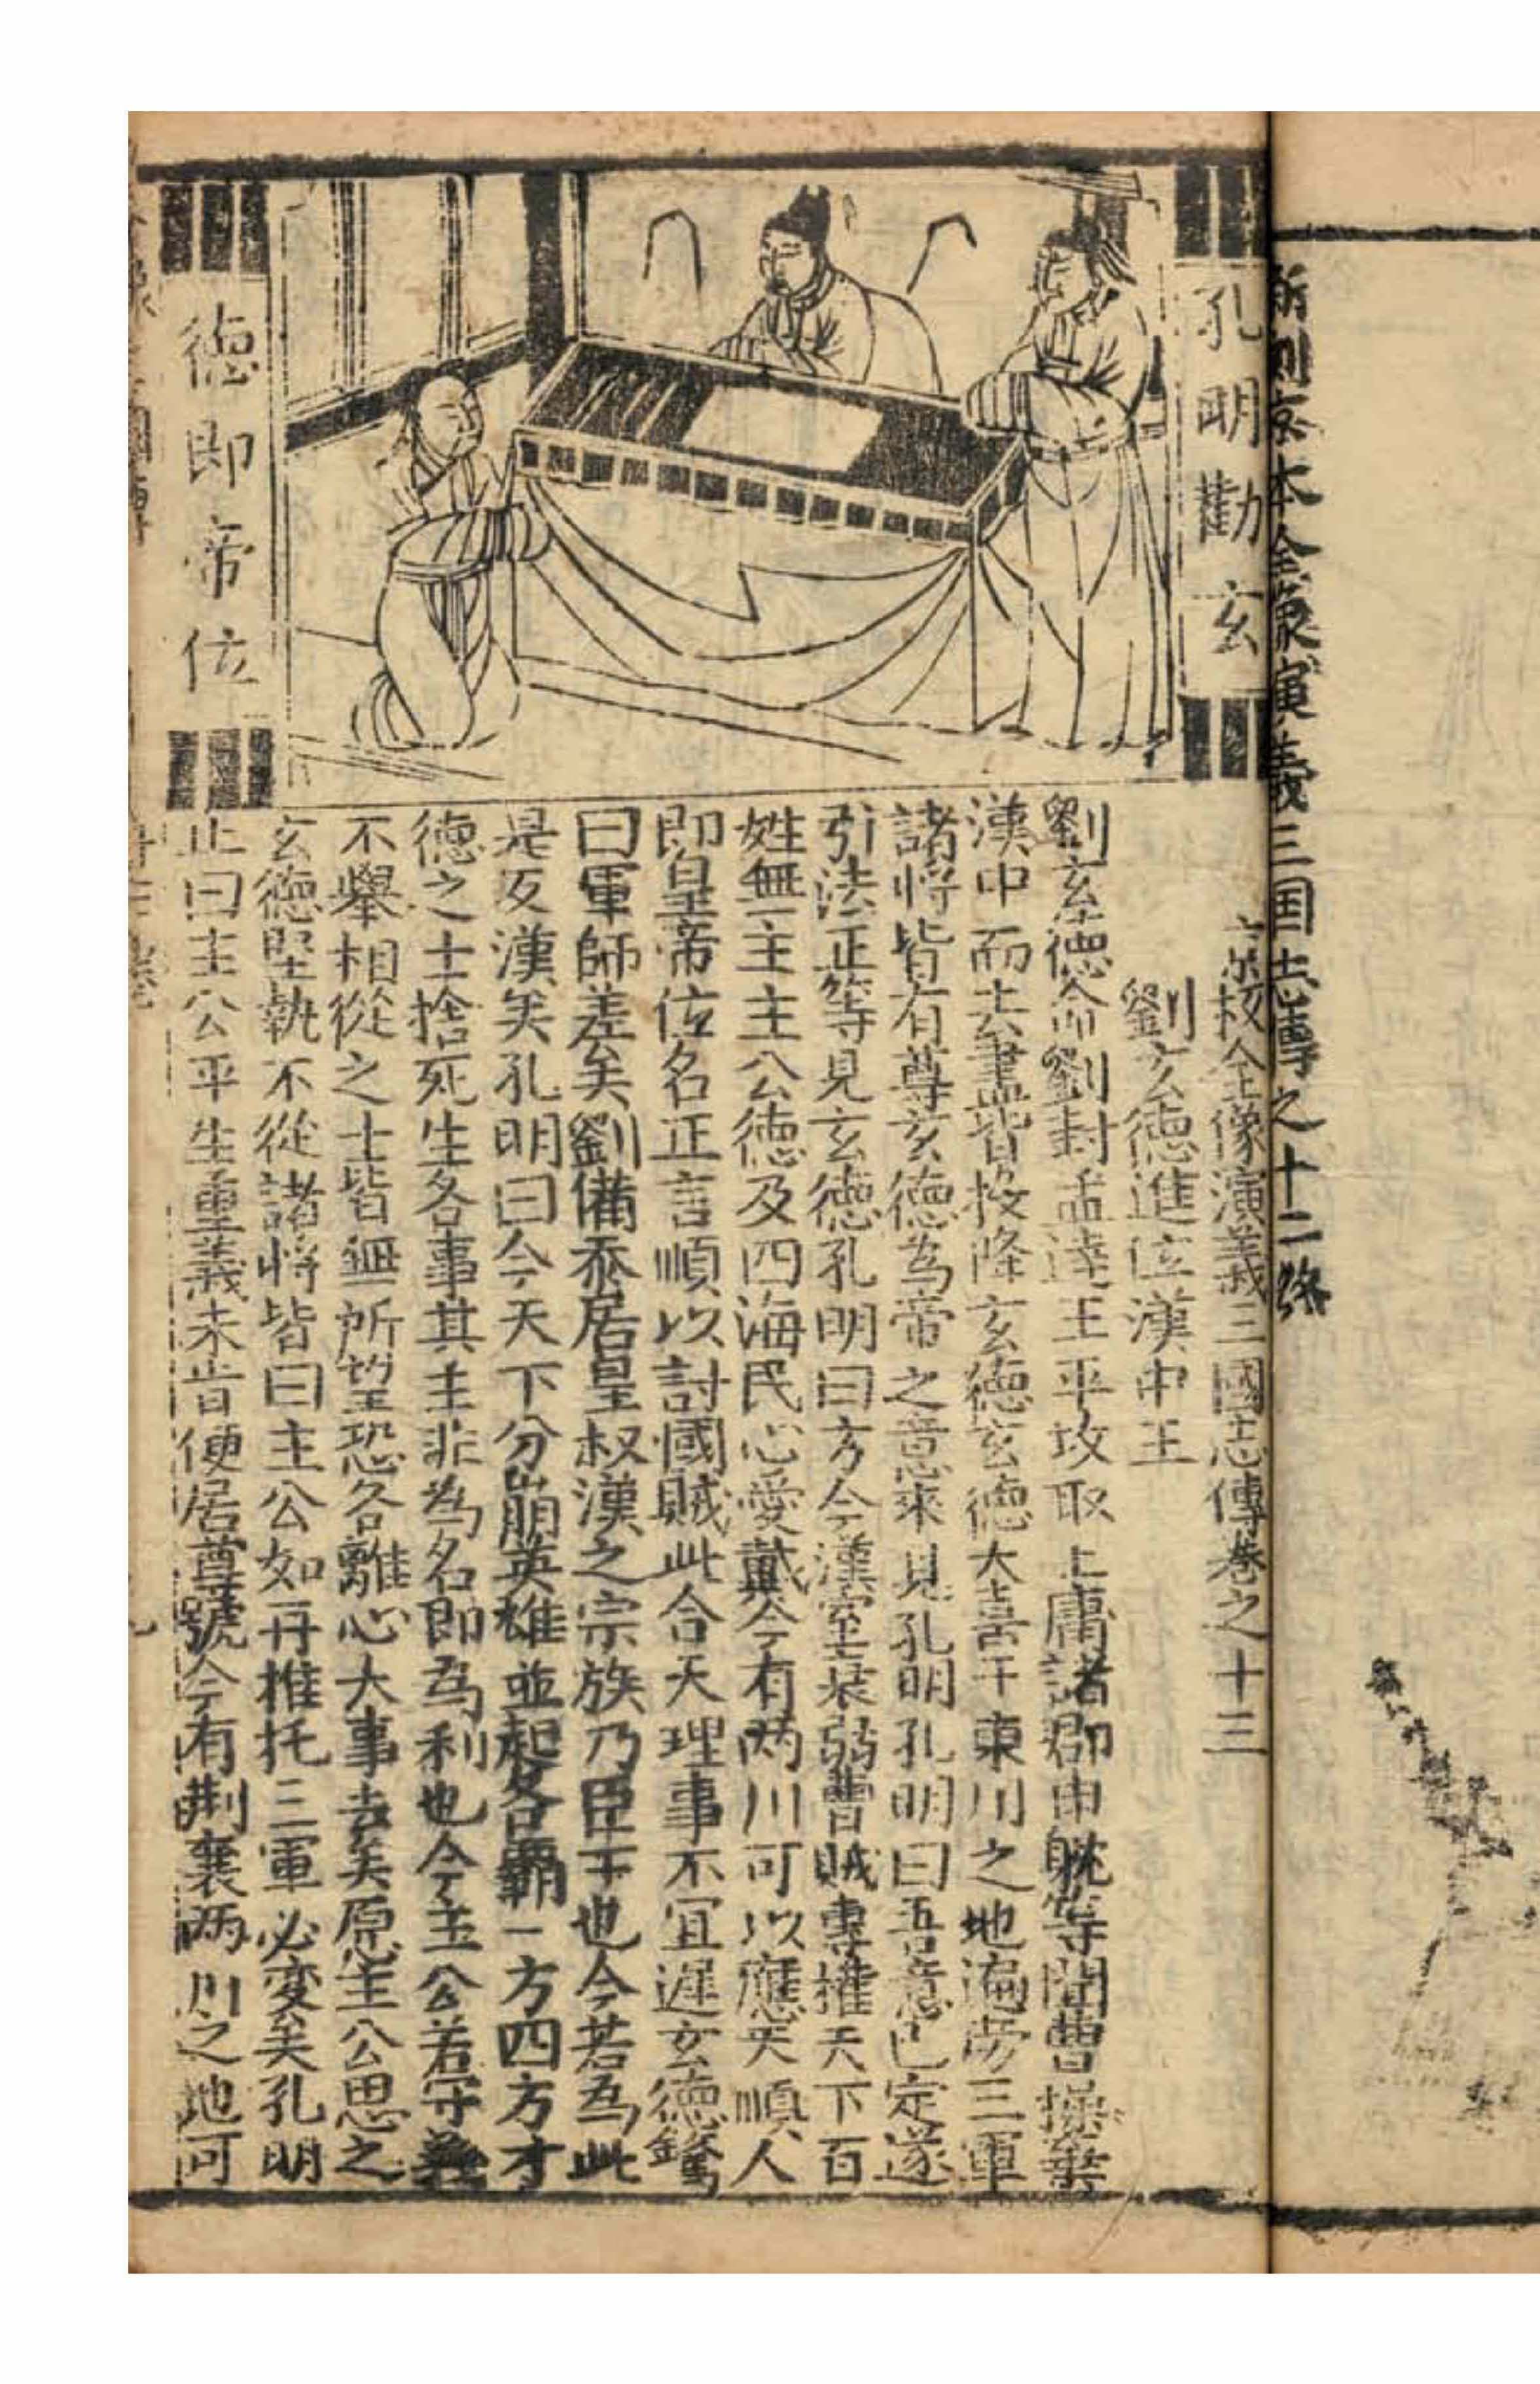 新刻京本全象演義三国志傳之十二終
孔明勸玄
德即帝位
京板全像演義三國志傳卷之十三
劉玄德進位漢中王
劉玄德命劉封孟逹王平攻取上庸諸郡申躭等聞曹操棄
漢中而去盡皆投降玄德玄德大喜于東川之地遍勞三軍
諸将皆有尊玄德為帝之意來見孔明孔明曰吾意已定遂
引法正等見玄德孔明曰方今漢室衰弱曹賊專權天下百
姓無主主公德及四海民心愛戴今有两川可以應天順人
即皇帝位名正言順以討國賊此合天理事不宜遲玄德驚
曰軍師差矣劉備忝居皇叔漢之宗族乃臣下也今若為此
是反漢矣孔明曰今天下分崩英雄並起各霸一方四方才
德之士捨死生各事其主非為名即為利也今主公若守義
不舉相從之士皆無所望恐各離心大事去矣原主公思之
玄德堅執不從諸将皆曰主公如再推托三軍必変矣孔明
止曰主公平生重義未肯便居尊號今有荆襄两川之地可